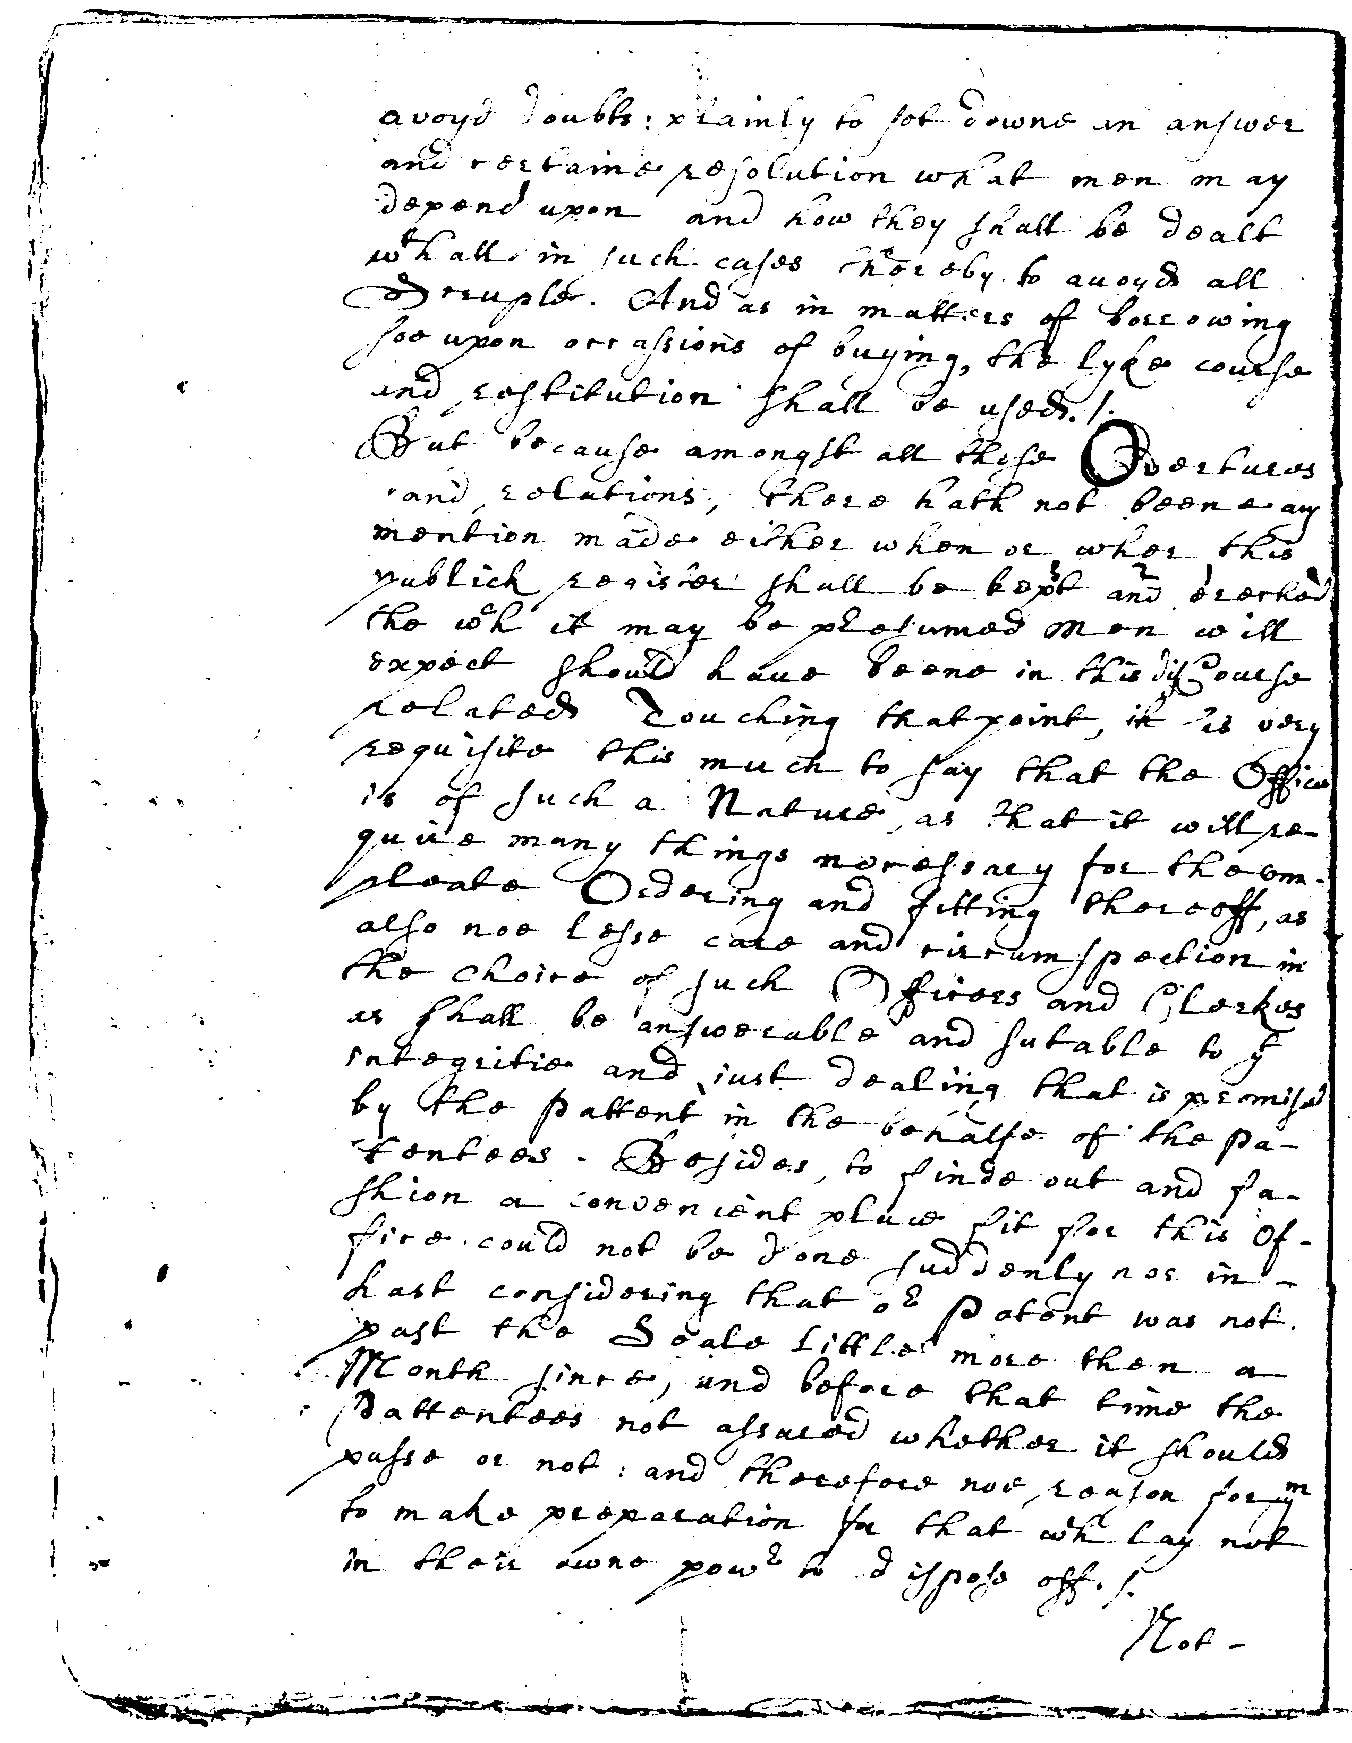 avoyd doubts: plainly to set downe an answer
and certaine resolution what men may
depend upon and how they shall be dealt
wthall in such cases thereby to auoyd all
Scruple. And as in matters of borrowing
soe upon occassions of buying, the lyke course
and restitution shall be used./.
But because amongst all these Overtures
and relations, there hath not beene any
mention made either when or wher this
publick register shall be kept and erected
the wch it may be presumed Men will
expect should haue beene in this disCourse
related Touching that point, it is very
requisite this much to say that the Office
is of such a Nature, as that it will re-
quire many things necessary for the com-
pleate Ordering and fitting thereoff, as
also noe lesse care and circumspection in
the choice of such Officers and Clerkes
as shall be answerable and sutable to ye
integritie and just dealing that is promised
by the Pattent in the behalfe of the Pa-
tentees. Besides, to finde out and fa-
shion a convenient place fit for this Of-
fice could not be done suddenly nor in-
hast considering that or Patent was not
past the Seale little more then a
Month since, and before that time the
Pattentees not assured whether it should
passe or not: and therefore noe reason for ym
to make preparation for that wch lay not
in their owne powr to dispose off./.
Not-